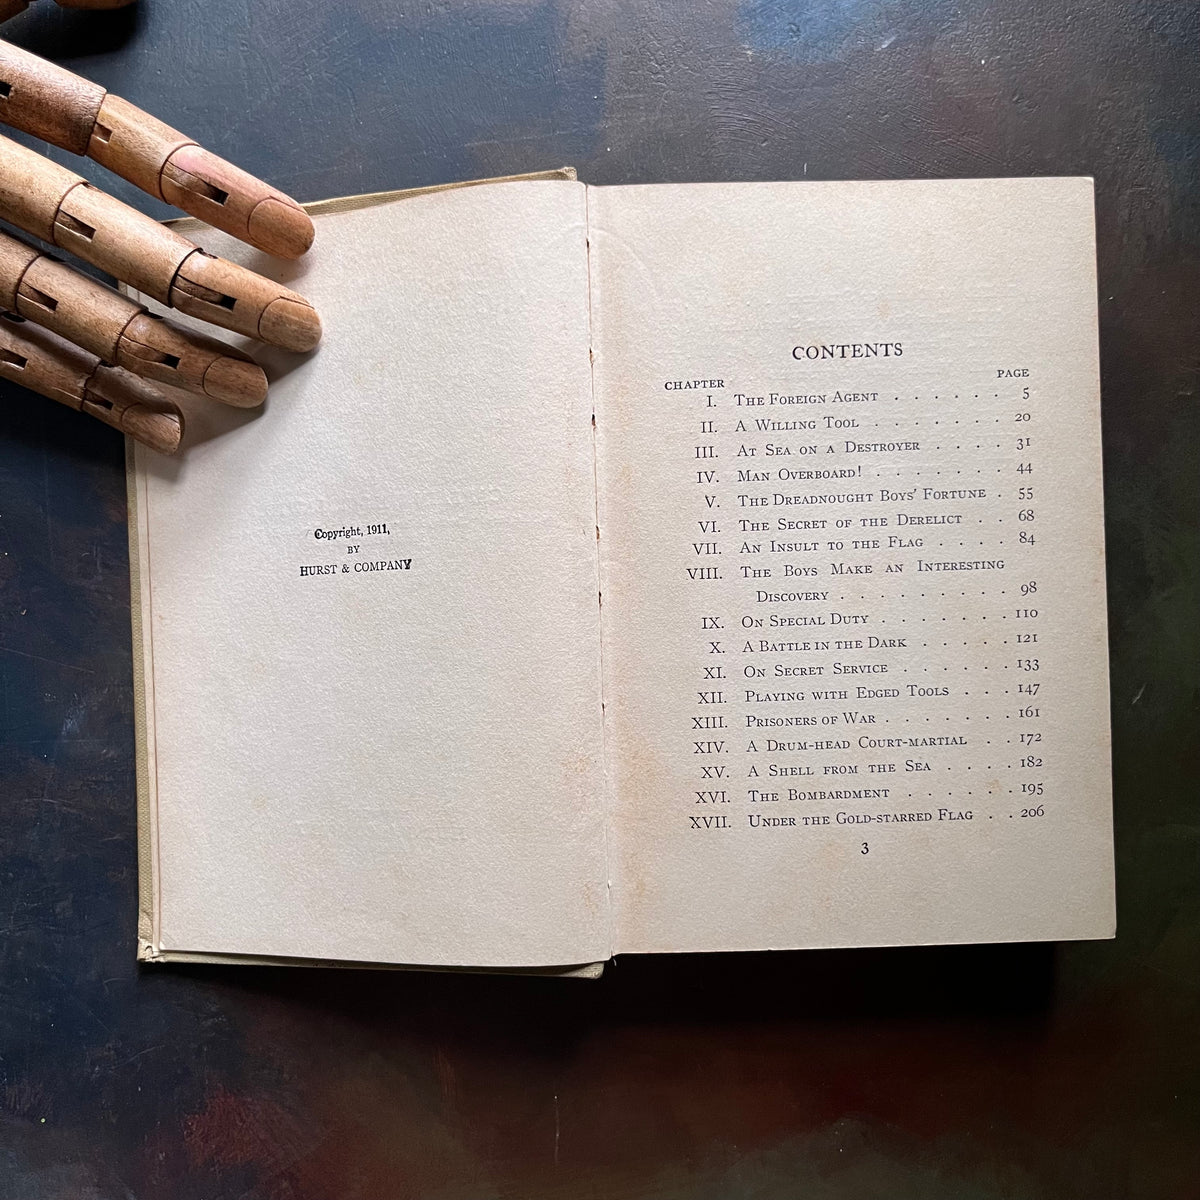 Copyright, 1911,
BY
HURST & COMPANY
CONTENTS
CHAPTER PAGE
I. THE FOREIGN AGENT . . . . . . 5
II. A WILLING TOOL . . . . . . . 20
III. AT SEA ON A DESTROYER . . . . 31
IV. MAN OVERBOARD! . . . . . . . 44
V. THE DREADNOUGHT BOYS' FORTUNE . 55
VI. THE SECRET OF THE DERELICT . . 68
VII. AN INSULT TO THE FLAG . . . . 84
VIII. THE BOYS MAKE AN INTERESTING
DISCOVERY . . . . . . . . . 98
IX. ON SPECIAL DUTY . . . . . . . 110
X. A BATTLE IN THE DARK . . . . . 121
XI. ON SECRET SERVICE . . . . . . 133
XII. PLAYING WITH EDGED TOOLS . . . 147
XIII. PRISONERS OF WAR . . . . . . . 161
XIV. A DRUM-HEAD COURT-MARTIAL . . 172
XV. A SHELL FROM THE SEA . . . . 182
XVI. THE BOMBARDMENT . . . . . . 195
XVII. UNDER THE GOLD-STARRED FLAG . . 206
3